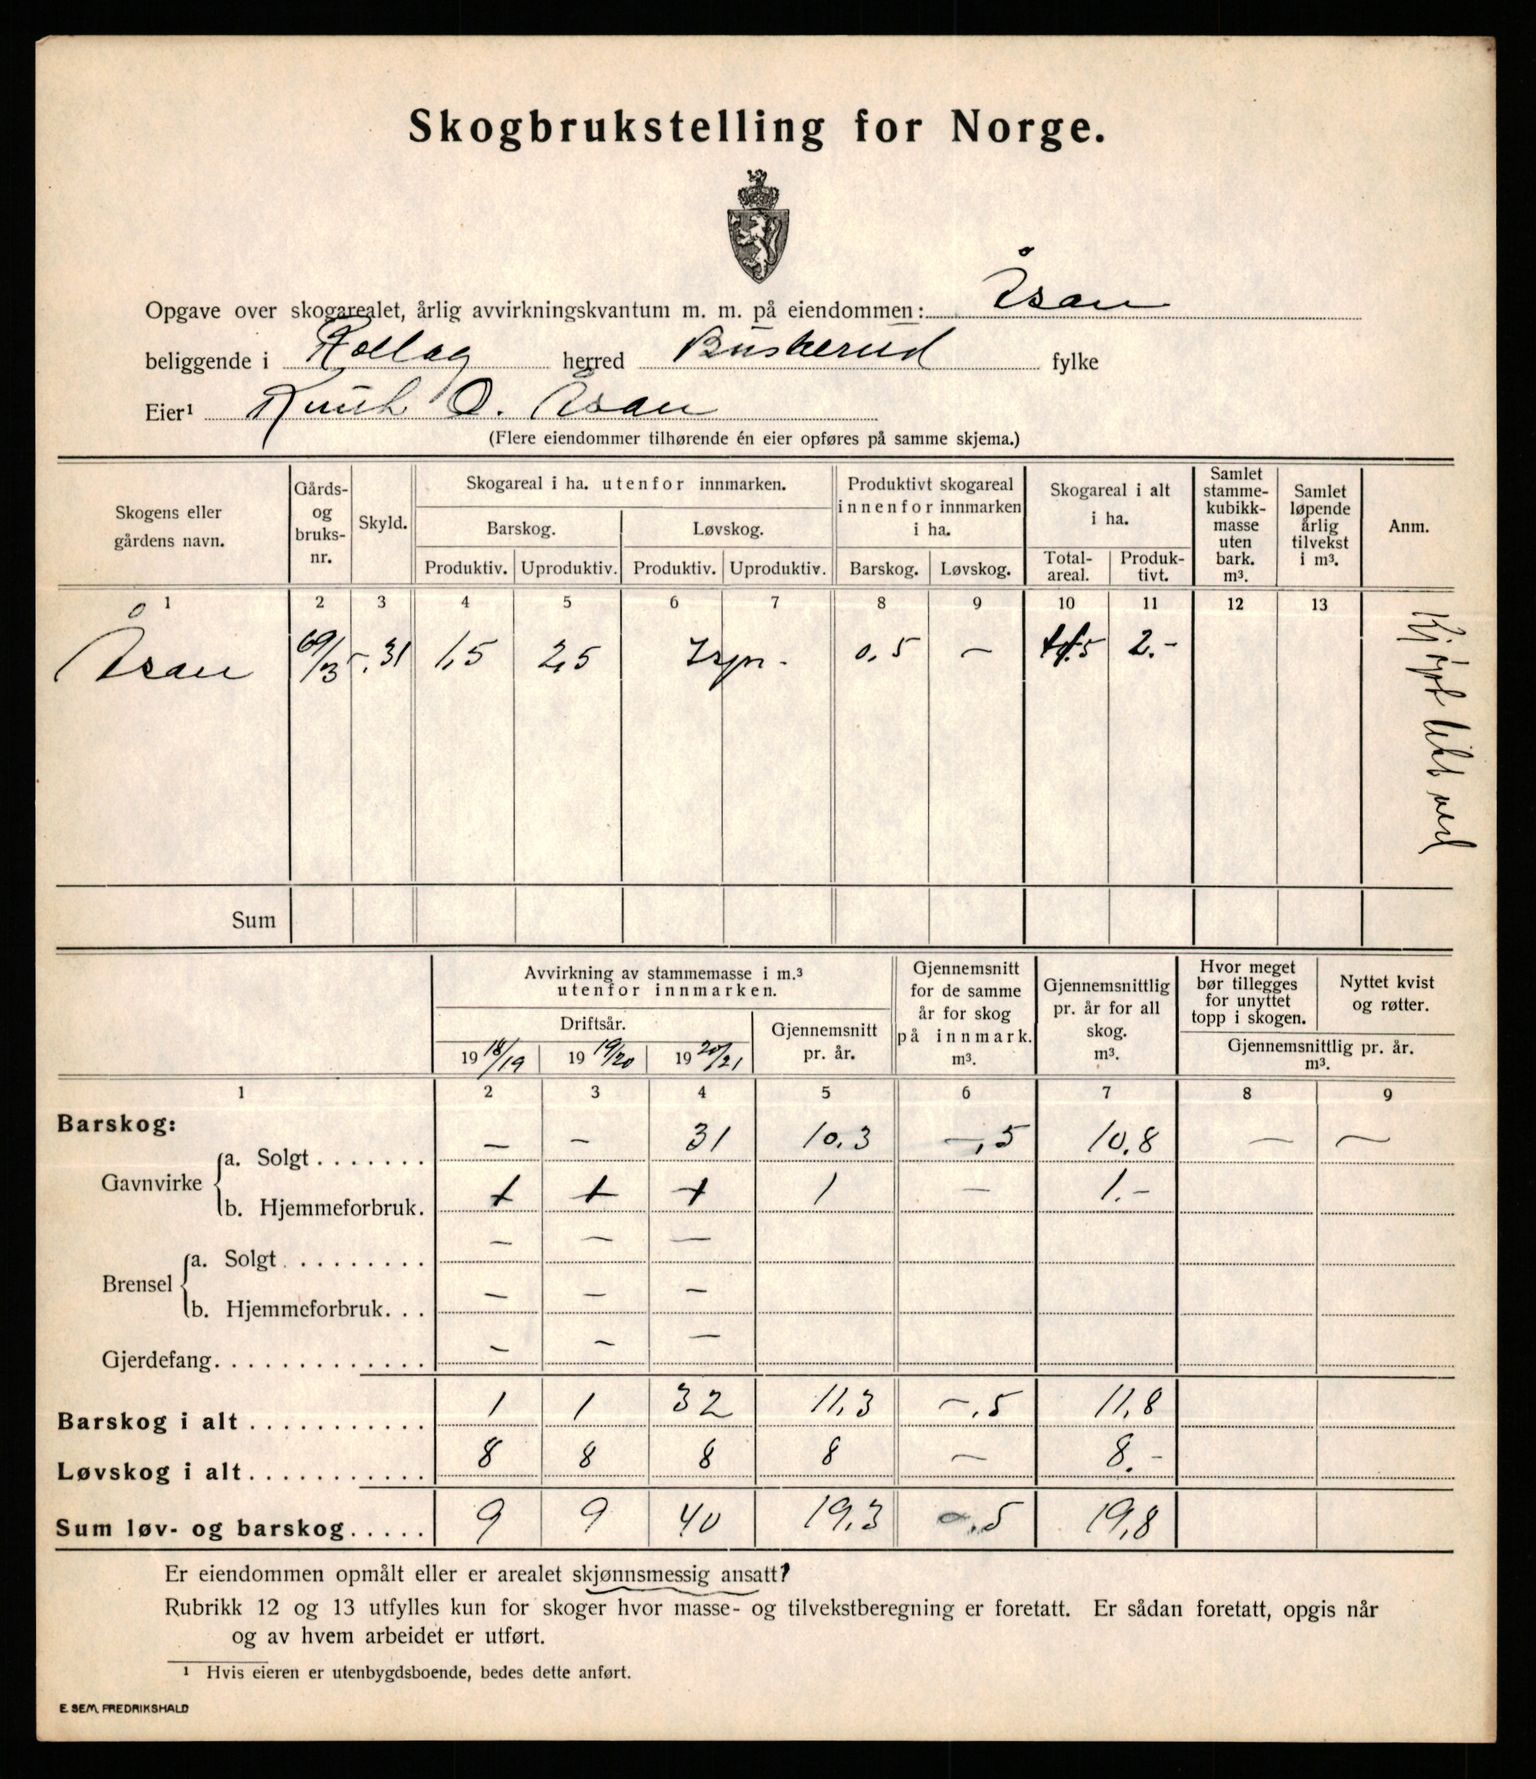 Skogbrukstelling for Norge.
Opgave over skogarealet, årlig avvirkningskvantum m. m. på eiendommen: Åsan
beliggende i Rollag herred Buskerud fylke
Eier¹ Knut O. Åsan
(Flere eiendommer tilhørende én eier opføres på samme skjema.)
Skogens eller gårdens navn. | Gårds- og bruks- nr. | Skyld. | Skogareal i ha. utenfor innmarken. | Produktivt skogareal innenfor innmarken i ha. | Skogareal i alt i ha. | Samlet stamme- kubikk- masse uten bark. m³. | Samlet løpende årlig tilvekst i m³. | Anm.
Barskog. | Løvskog.
Produktiv. | Uproduktiv. | Produktiv. | Uproduktiv. | Barskog. | Løvskog. | Total- areal. | Produk- tivt.
1 | 2 | 3 | 4 | 5 | 6 | 7 | 8 | 9 | 10 | 11 | 12 | 13
Åsan | 69/13 | -.31 | 1,5 | 2,5 | 0,5 | — | 4.5 | 2.- | Kjøpt litt ved
Sum
Avvirkning av stammemasse i m.³ utenfor innmarken. | Gjennemsnitt for de samme år for skog på innmark. m³. | Gjennemsnittlig pr. år for all skog. m³. | Hvor meget bør tillegges for unyttet topp i skogen. | Nyttet kvist og røtter.
Driftsår. | Gjennemsnitt pr. år. | Gjennemsnittlig pr. år. m³.
1918/19 | 1919/20 | 1920/21
1 | 2 | 3 | 4 | 5 | 6 | 7 | 8 | 9
Barskog:
Gavnvirke a. Solgt....... — | — | 31 | 10,3 | -,5 | 10,8 | — | —
b. Hjemmeforbruk. + | + | + | 1 | — | 1.-
Brensel a. Solgt......... — | — | —
b. Hjemmeforbruk... — | — | —
Gjerdefang............. — | — | —
Barskog i alt........... 1 | 1 | 32 | 11,3 | -,5 | 11,8
Løvskog i alt........... 8 | 8 | 8 | 8 | — | 8.-
Sum løv- og barskog..... 9 | 9 | 40 | 19,3 | -,5 | 19,8
Er eiendommen opmålt eller er arealet skjønnsmessig ansatt?
Rubrikk 12 og 13 utfylles kun for skoger hvor masse- og tilvekstberegning er foretatt. Er sådan foretatt, opgis når
og av hvem arbeidet er utført.
¹ Hvis eieren er utenbygdsboende, bedes dette anført.
E. SEM, FREDRIKSHALD